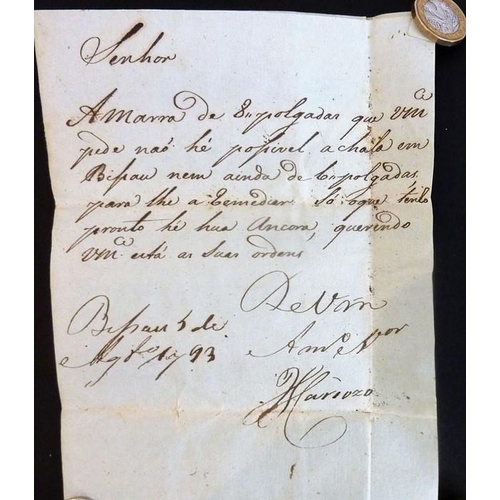 Senhor
A Marra de 8,,polgadas que Vm.ce
pede naó hé posivel achala em
Bissau nem ainda de 6,,polgadas
para lhe a Remediar Só oque tenho
pronto hé hua Ancora, querendo
Vm.ce está as suas ordens
De Vm
Bissau 5 de
Am.o e V.or
Ag.to 1793